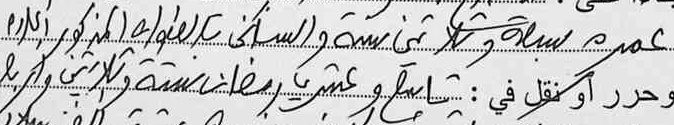 عمره سبعة وثلاثين سنة والساكن بالعنوان المذكور أعلاه
وحرر أو نقل في : تاسع وعشرين رمضان ستة وثلاثين وأربع